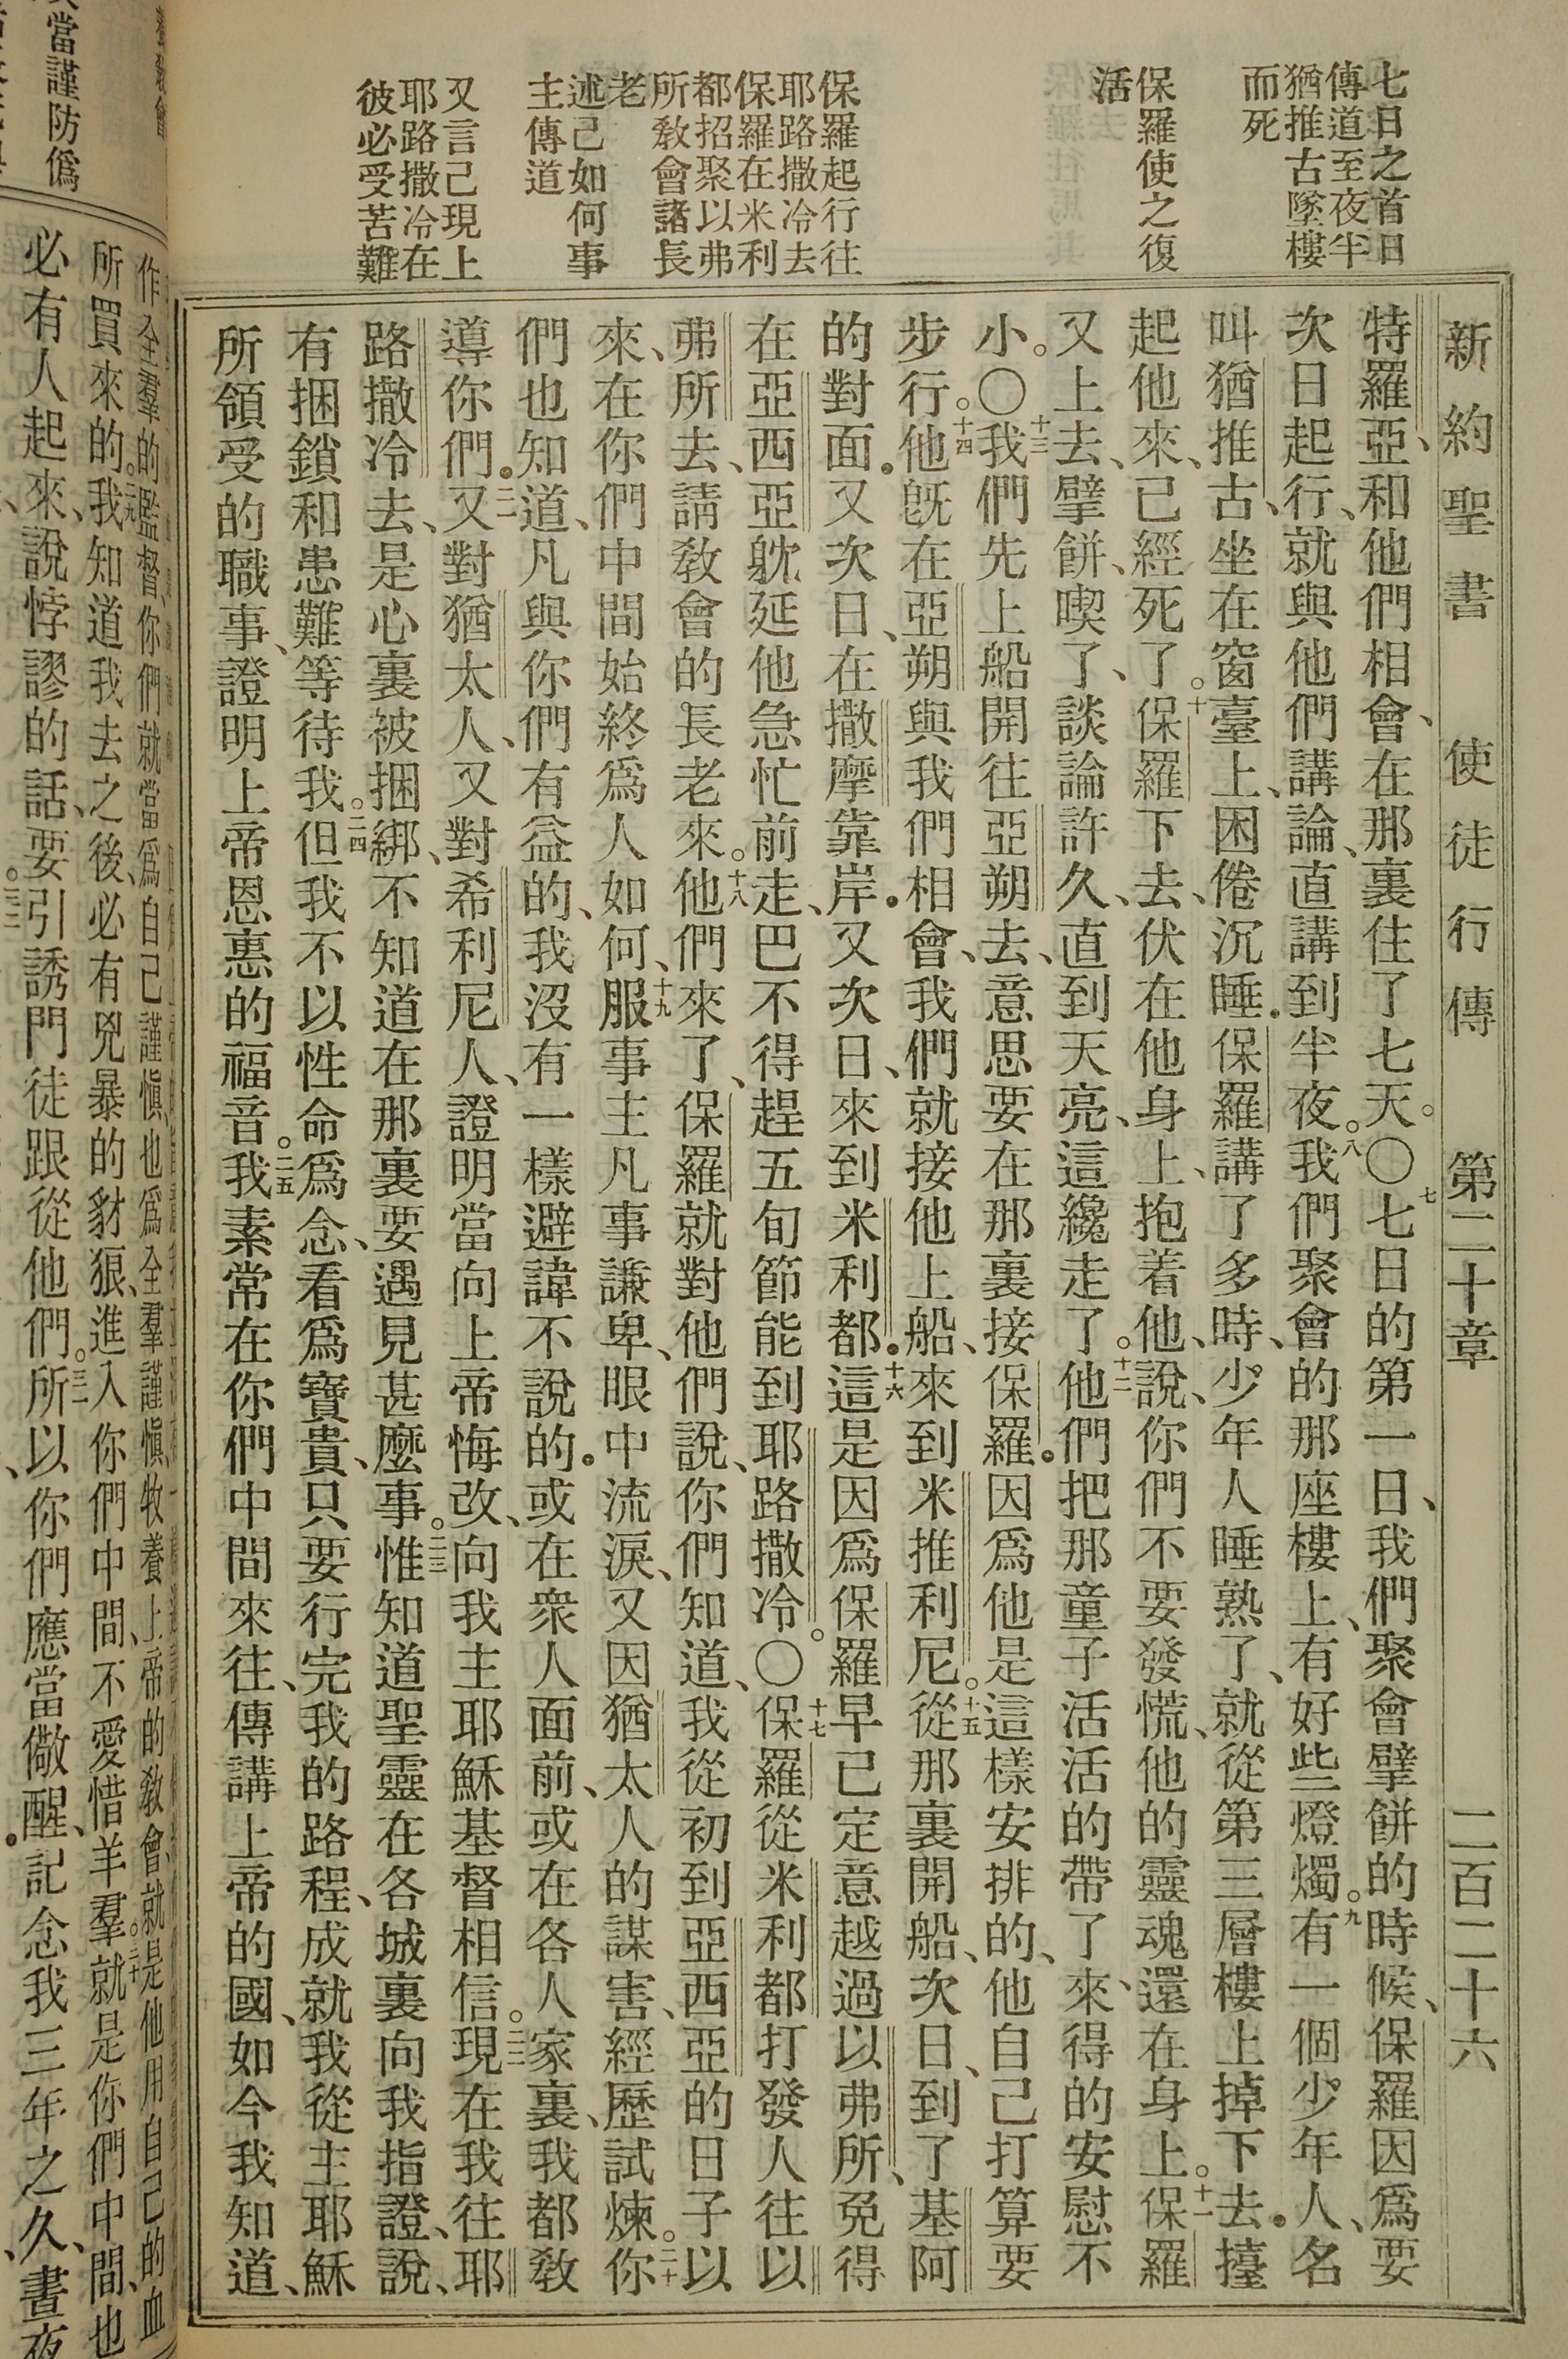 新約聖書　使徒行傳　第二十章　二百二十六
七日之首日
傳道至夜半
猶推古墜樓
而死
保羅使之復
活
保羅起行往
耶路撒冷去
保羅在米利
都招聚以弗
所敎會諸長
老
述己如何事
主傳道
又言己現上
耶路撒冷在
彼必受苦難
特羅亞、和他們相會、在那裏住了七天。〇七七日的第一日、我們聚會擘餅的時候、保羅因爲要
次日起行、就與他們講論、直講到半夜。八我們聚會的那座樓上、有好些燈燭。九有一個少年人、名
叫猶推古、坐在窗臺上、困倦沉睡．保羅講了多時、少年人睡熟了、就從第三層樓上掉下去．擡
起他來、已經死了。十保羅下去、伏在他身上、抱着他、說、你們不要發慌、他的靈魂還在身上。十一保羅
又上去、擘餅、喫了、談論許久、直到天亮、這纔走了。十二他們把那童子活活的帶了來、得的安慰不
小。〇十三我們先上船開往亞朔去、意思要在那裏接保羅．因爲他是這樣安排的、他自己打算要
步行。十四他旣在亞朔與我們相會、我們就接他上船、來到米推利尼。十五從那裏開船、次日、到了基阿
的對面．又次日、在撒摩靠岸．又次日、來到米利都．十六這是因爲保羅早已定意越過以弗所、免得
在亞西亞躭延他急忙前走、巴不得趕五旬節能到耶路撒冷。〇十七保羅從米利都打發人往以
弗所去、請敎會的長老來。十八他們來了、保羅就對他們說、你們知道、我從初到亞西亞的日子以
來、在你們中間始終爲人如何、十九服事主凡事謙卑、眼中流淚、又因猶太人的謀害、經歷試煉。二十你
們也知道、凡與你們有益的、我沒有一樣避諱不說的．或在衆人面前、或在各人家裏、我都敎
導你們．二一又對猶太人、又對希利尼人、證明當向上帝悔改、向我主耶穌基督相信。二二現在我往耶
路撒冷去、是心裏被捆綁、不知道在那裏要遇見甚麼事。二三惟知道聖靈在各城裏向我指證、說、
有捆鎖和患難等待我。二四但我不以性命爲念、看爲寶貴、只要行完我的路程、成就我從主耶穌
所領受的職事、證明上帝恩惠的福音。二五我素常在你們中間來往、傳講上帝的國、如今我知道、
當謹防僞
作全羣的監督、你們就當爲自己謹愼、也爲全羣謹愼、牧養上帝的敎會、就是他用自己的血
所買來的。二九我知道我去之後、必有兇暴的豺狼、進入你們中間、不愛惜羊羣。三十就是你們中間、也
必有人起來、說悖謬的話、要引誘門徒跟從他們。三一所以你們應當儆醒、記念我三年之久、晝夜